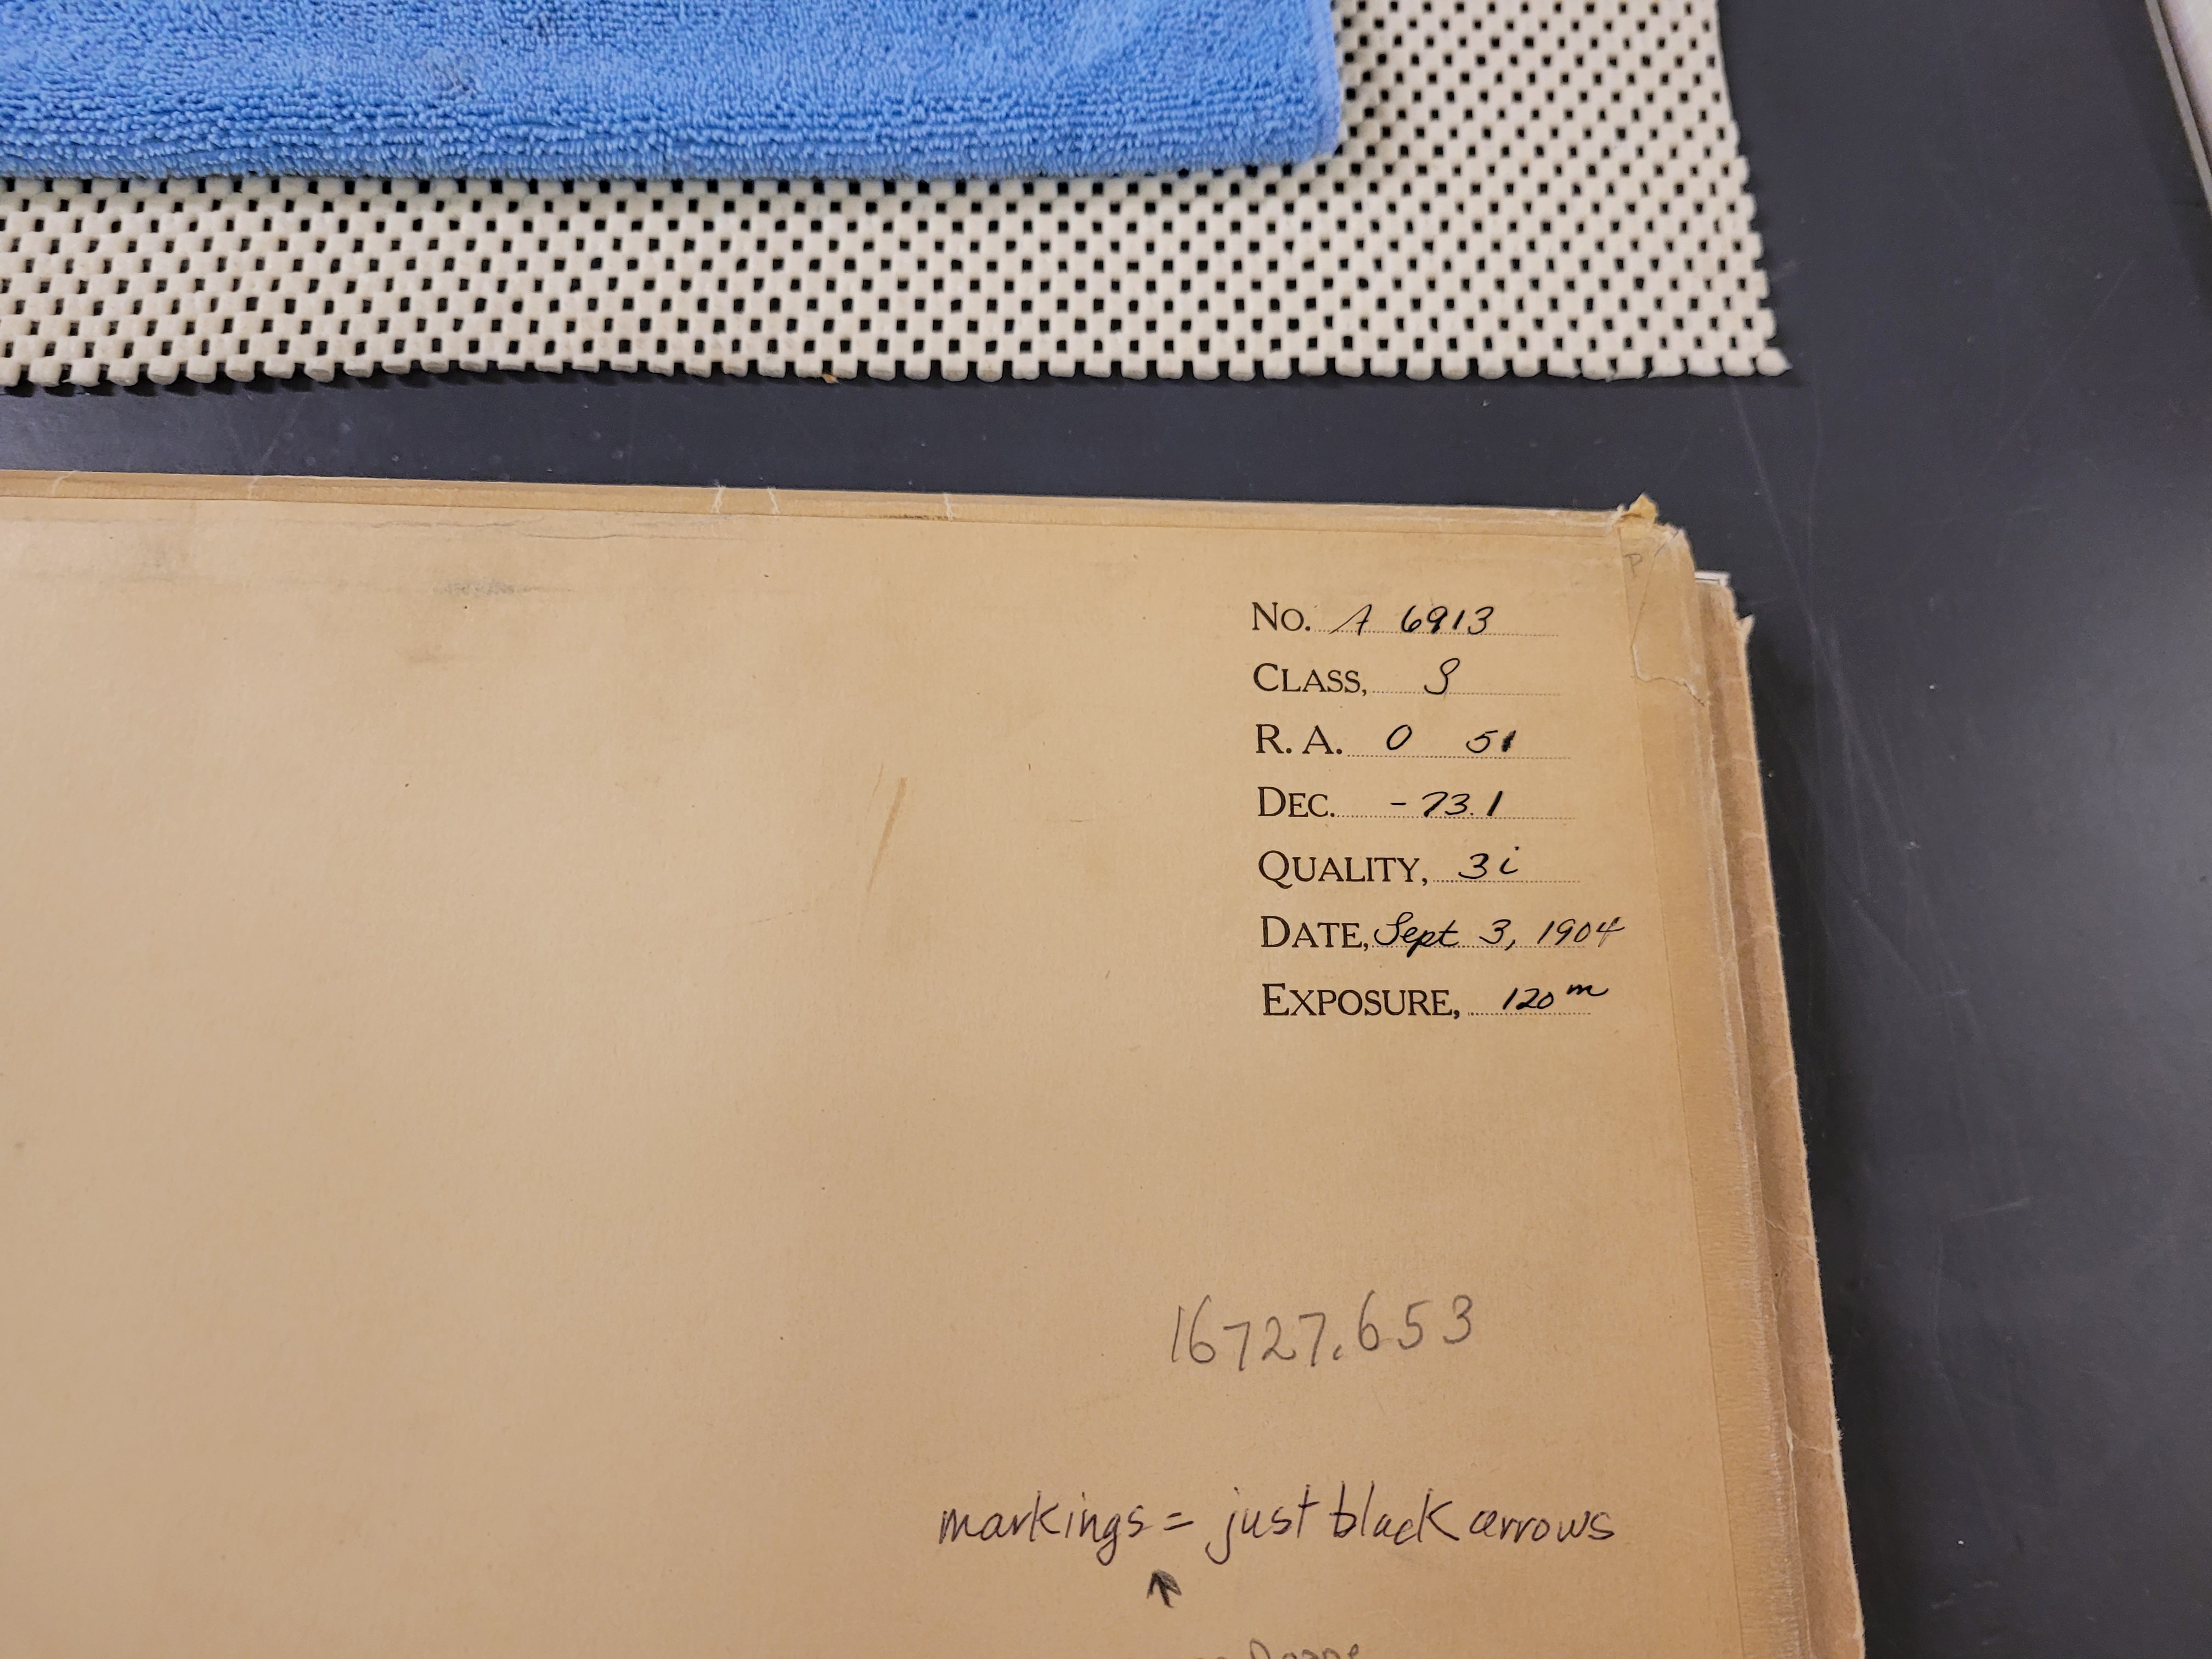 No. A 6913
CLASS, S
R. A. 0 51
DEC. - 73.1
QUALITY, 3 i
DATE, Sept 3, 1904
EXPOSURE, 120 m
16727.653
markings = just black arrows